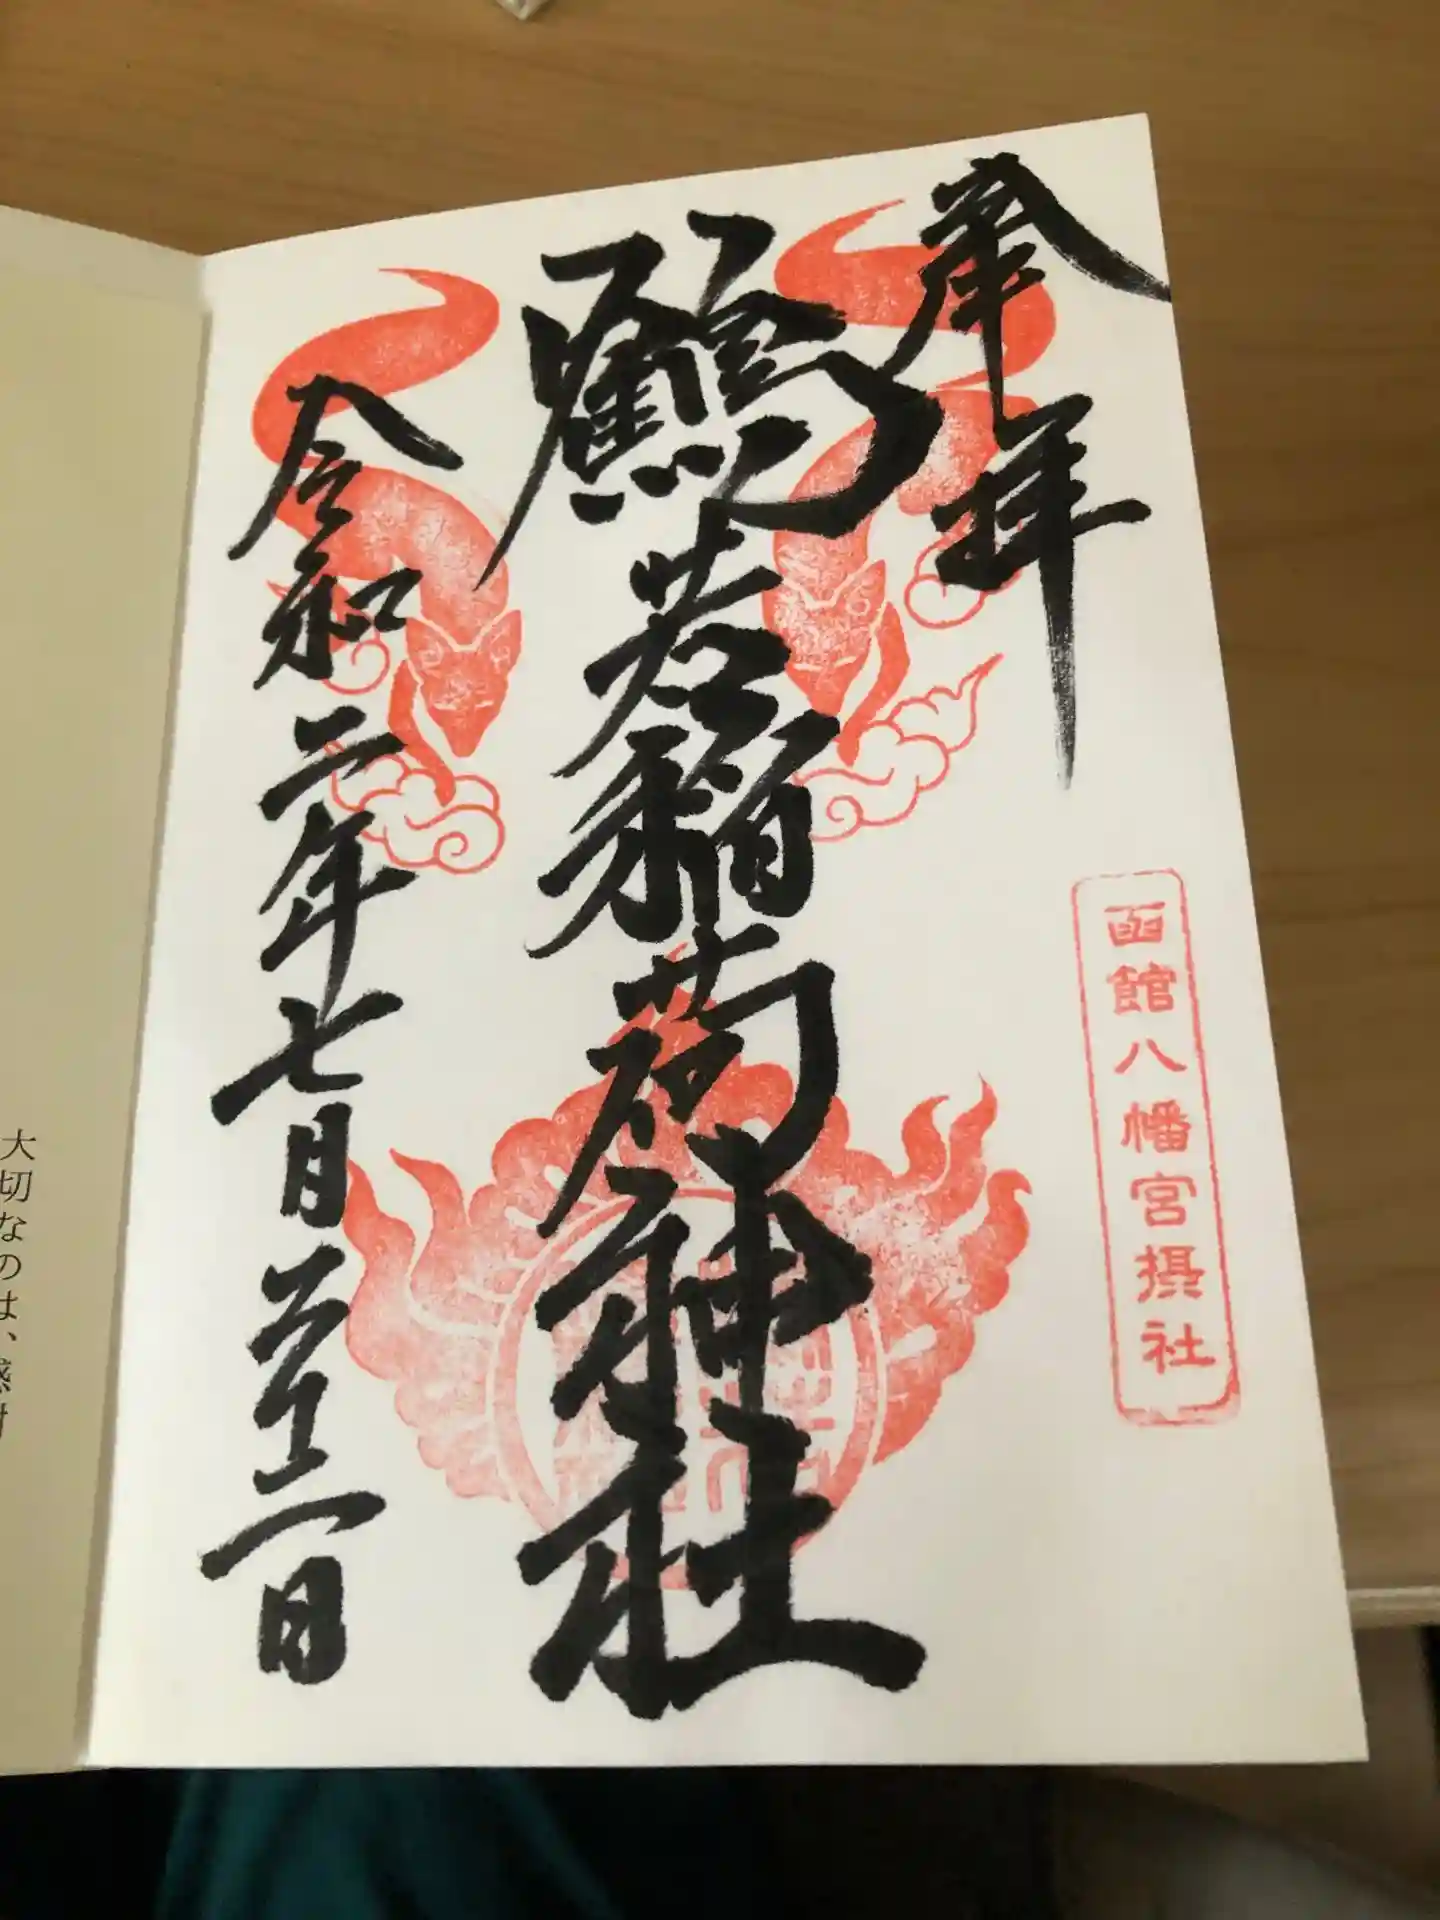 奉拝
函館八幡宮摂社
鶴若稲荷神社
令和二年七月二十二日
大切なのは、